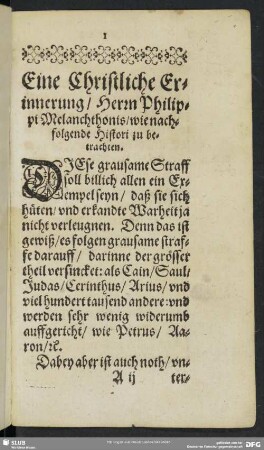 1
Eine Christliche Er-
innerung / Herrn Philip-
pi Melanchthonis / wie nach-
folgende Histori zu be-
trachten.
DIEse grausame Straff
soll billich allen ein Ex-
empel seyn / daß sie sich
hüten / vnd erkandte Warheit ja
nicht verleugnen. Denn das ist
gewiß / es folgen grausame straf-
fe darauff / darinne der grösser
theil versincket: als Cain / Saul /
Judas / Cerinthus / Arius / vnd
viel hundert tausend andere: vnd
werden sehr wenig widerumb
auffgericht / wie Petrus / Aa-
ron / ꝛc.
Dabey aber ist auch noth / vn-
A ij ter-
SLUB
DFG